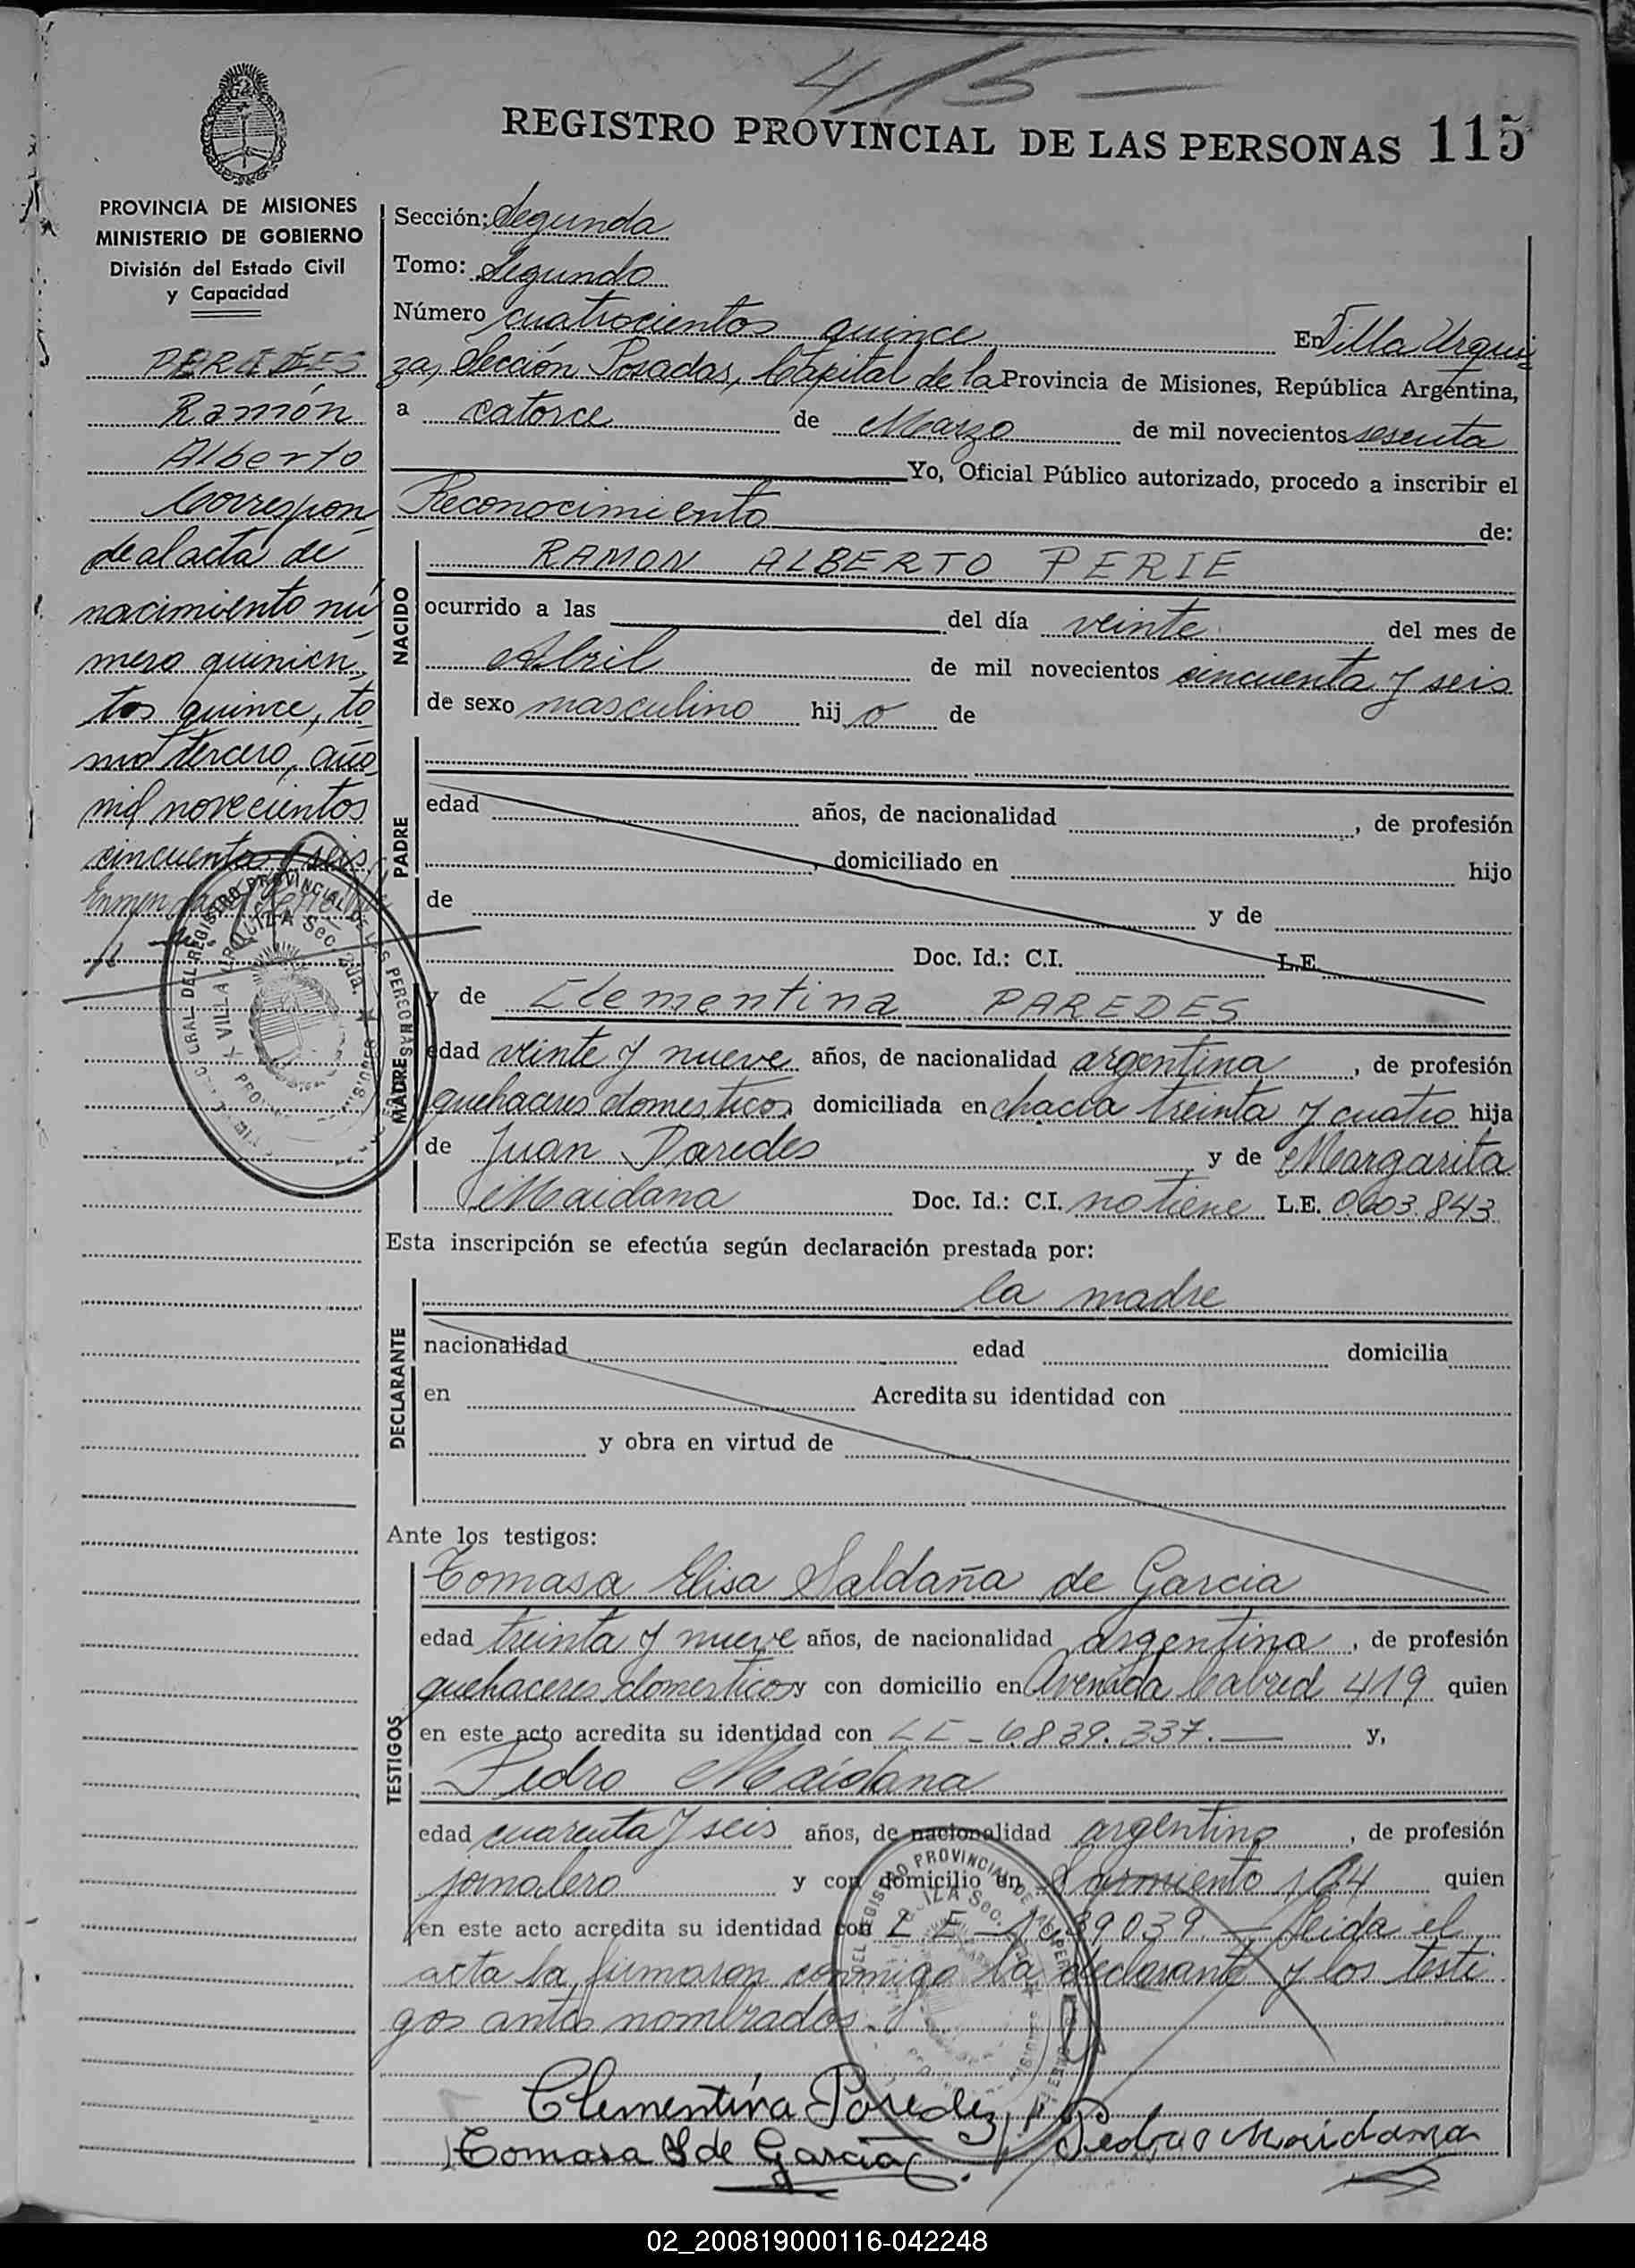 415 —
REGISTRO PROVINCIAL DE LAS PERSONAS 115
PROVINCIA DE MISIONES
MINISTERIO DE GOBIERNO
División del Estado Civil
y Capacidad
PAREDES
Ramón
Alberto
Correspon
de al acta de
nacimiento nú
mero quinien
tos quince, to
mo tercero, año
mil novecientos
cincuenta y seis
Sección: Segunda
Tomo: Segundo
Número cuatrocientos quince En Villa Urqui
za, Sección Posadas, Capital de la Provincia de Misiones, República Argentina,
a catorce de Marzo de mil novecientos sesenta
Yo, Oficial Público autorizado, procedo a inscribir el
Reconocimiento de:
NACIDO
RAMON ALBERTO PERIE
ocurrido a las del día veinte del mes de
Abril de mil novecientos cincuenta y seis
de sexo masculino hij o de
PADRE
edad años, de nacionalidad , de profesión
, domiciliado en hijo
de y de
Doc. Id.: C.I. L.E.
MADRE
y de Clementina PAREDES
edad veinte y nueve años, de nacionalidad argentina , de profesión
quehaceres domesticos domiciliada en chacra treinta y cuatro hija
de Juan Paredes y de Margarita
Maidana Doc. Id.: C.I. no tiene L.E. 0.603.843
Esta inscripción se efectúa según declaración prestada por:
DECLARANTE
la madre
nacionalidad edad domicilia
en Acredita su identidad con
y obra en virtud de
Ante los testigos:
TESTIGOS
Tomasa Elisa Saldaña de Garcia
edad treinta y nueve años, de nacionalidad argentina , de profesión
quehaceres domesticos y con domicilio en Avenida Cabred 419 quien
en este acto acredita su identidad con LE - 6.839.337. — y,
Pedro Maidana
edad cuarenta y seis años, de nacionalidad argentino , de profesión
jornalero y con domicilio en Sarmiento 104 quien
en este acto acredita su identidad con L E — Leida el
acta la firmaron conmigo la declarante y los testi
gos antes nombrados.
Clementina Paredez
Tomasa S de Garcia Pedro Maidana
02_200819000116-042248